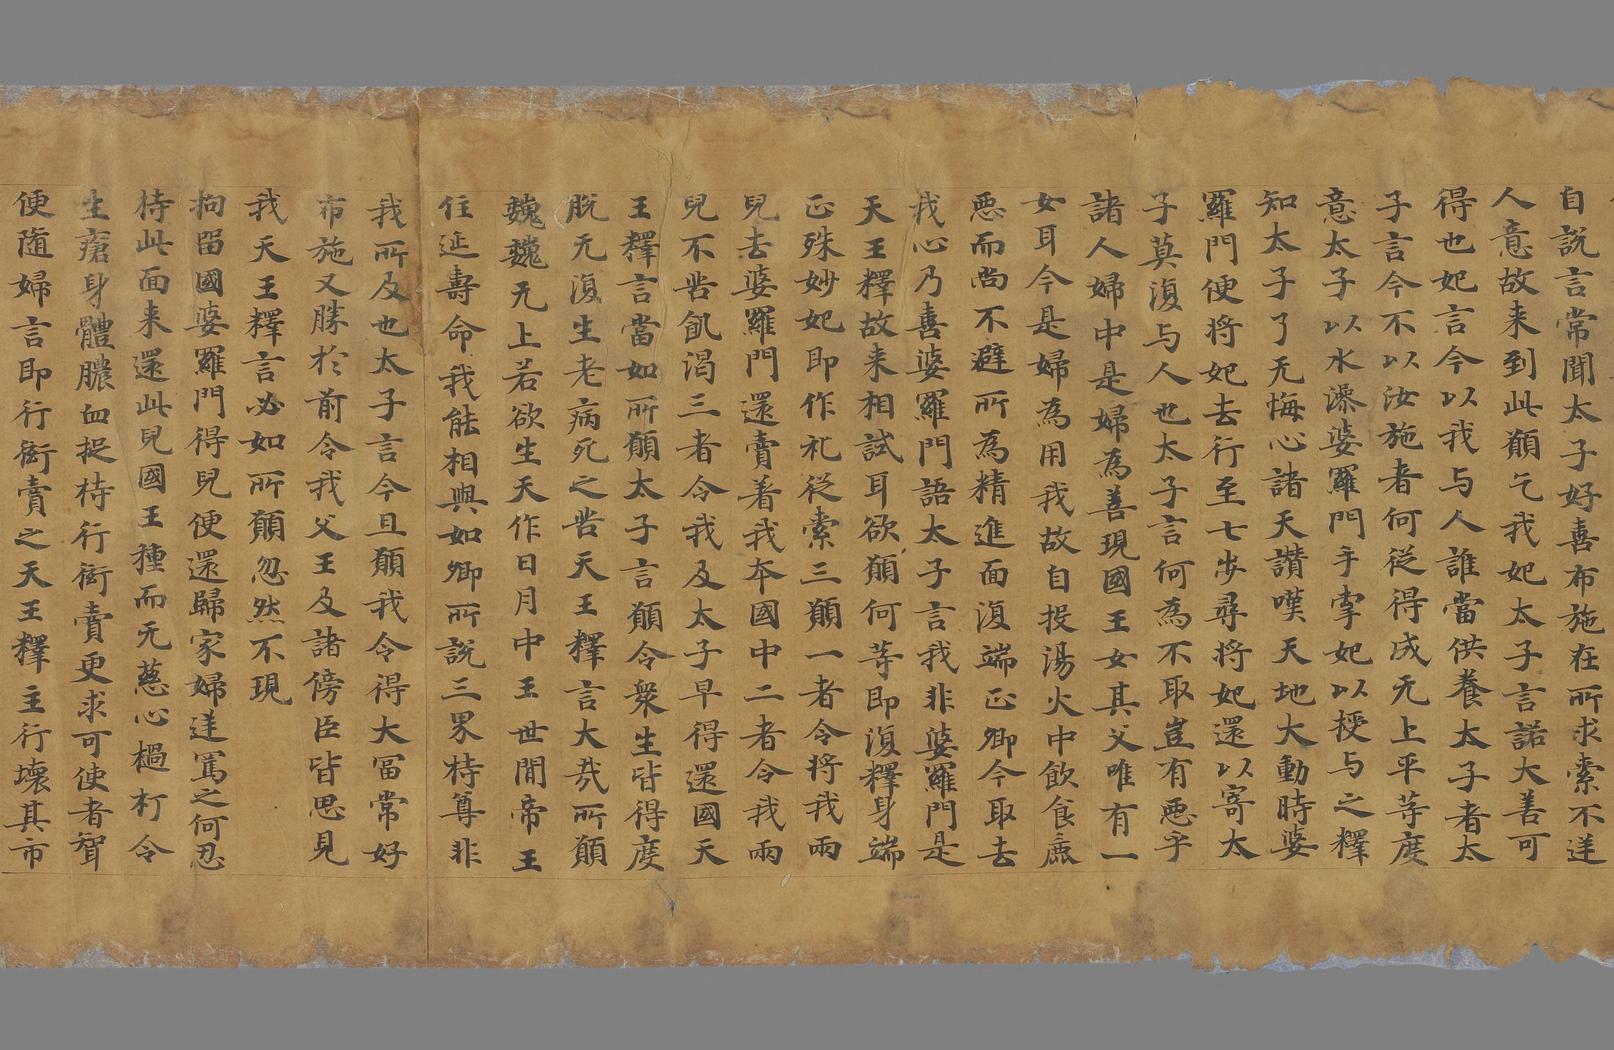 自說言常聞太子好喜布施在所求索不逆
人意故来到此願乞我妃太子言諾大善可
得也妃言今以我与人誰當供養太子者太
子言今不以汝施者何從得成无上平等度
意太子以水澡婆羅門手牽妃以授与之釋
知太子了无悔心諸天讚嘆天地大動時婆
羅門便将妃去行至七步尋将妃還以寄太
子莫復与人也太子言何為不取豈有惡乎
諸人婦中是婦為善現國王女其父唯有一
女耳今是婦為用我故自投湯火中飲食麁
惡而尚不避所為精進面復端正卿今取去
我心乃喜婆羅門語太子言我非婆羅門是
天王釋故来相試耳欲願何等即復釋身端
正殊妙妃即作礼從索三願一者令将我兩
兒去婆羅門還賣著我夲國中二者令我兩
兒不苦飢渴三者令我及太子早得還國天
王釋言當如所願太子言願令衆生皆得度
脫无復生老病死之苦天王釋言大哉所願
巍巍无上若欲生天作日月中王世間帝王
住延壽命我能相與如卿所說三界特尊非
我所及也太子言今且願我令得大冨常好
布施又勝於前令我父王及諸傍臣皆思見
我天王釋言必如所願忽然不現
拘留國婆羅門得兒便還歸家婦逆罵之何忍
持此面来還此兒國王種而无慈心檛打令
生瘡身體膿血捉持行衒賣更求可使者聟
便隨婦言即行衒賣之天王釋主行壞其市